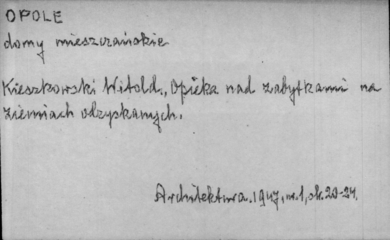 OPOLE
domy mieszczańskie
Kieszkowski Witold., Opieka nad zabytkami na
ziemiach odzyskanych.
Architektura. 1947, nr. 1, st. 20-24.